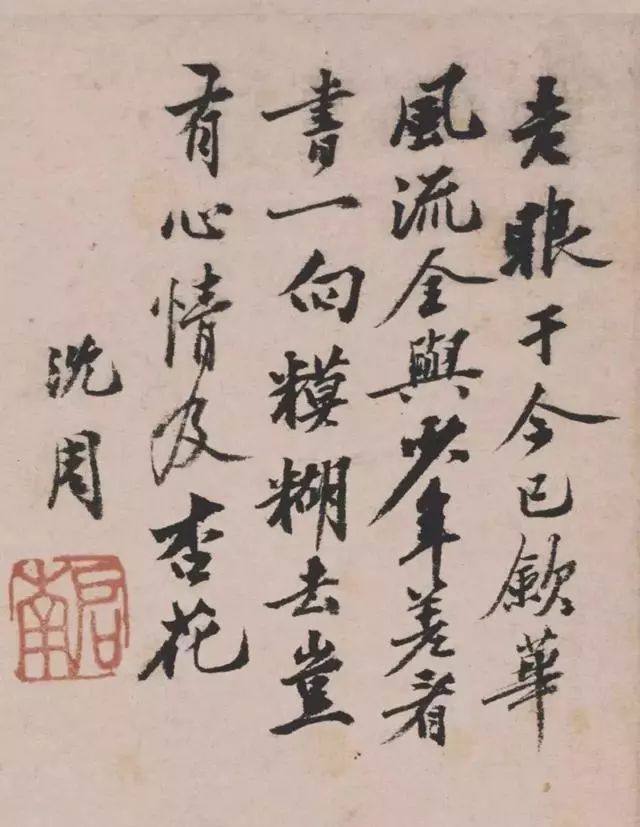 老眼于今已斂華
風流全與少年差看
書一向糢糊去豈
有心情及杏花
沈周
啟南